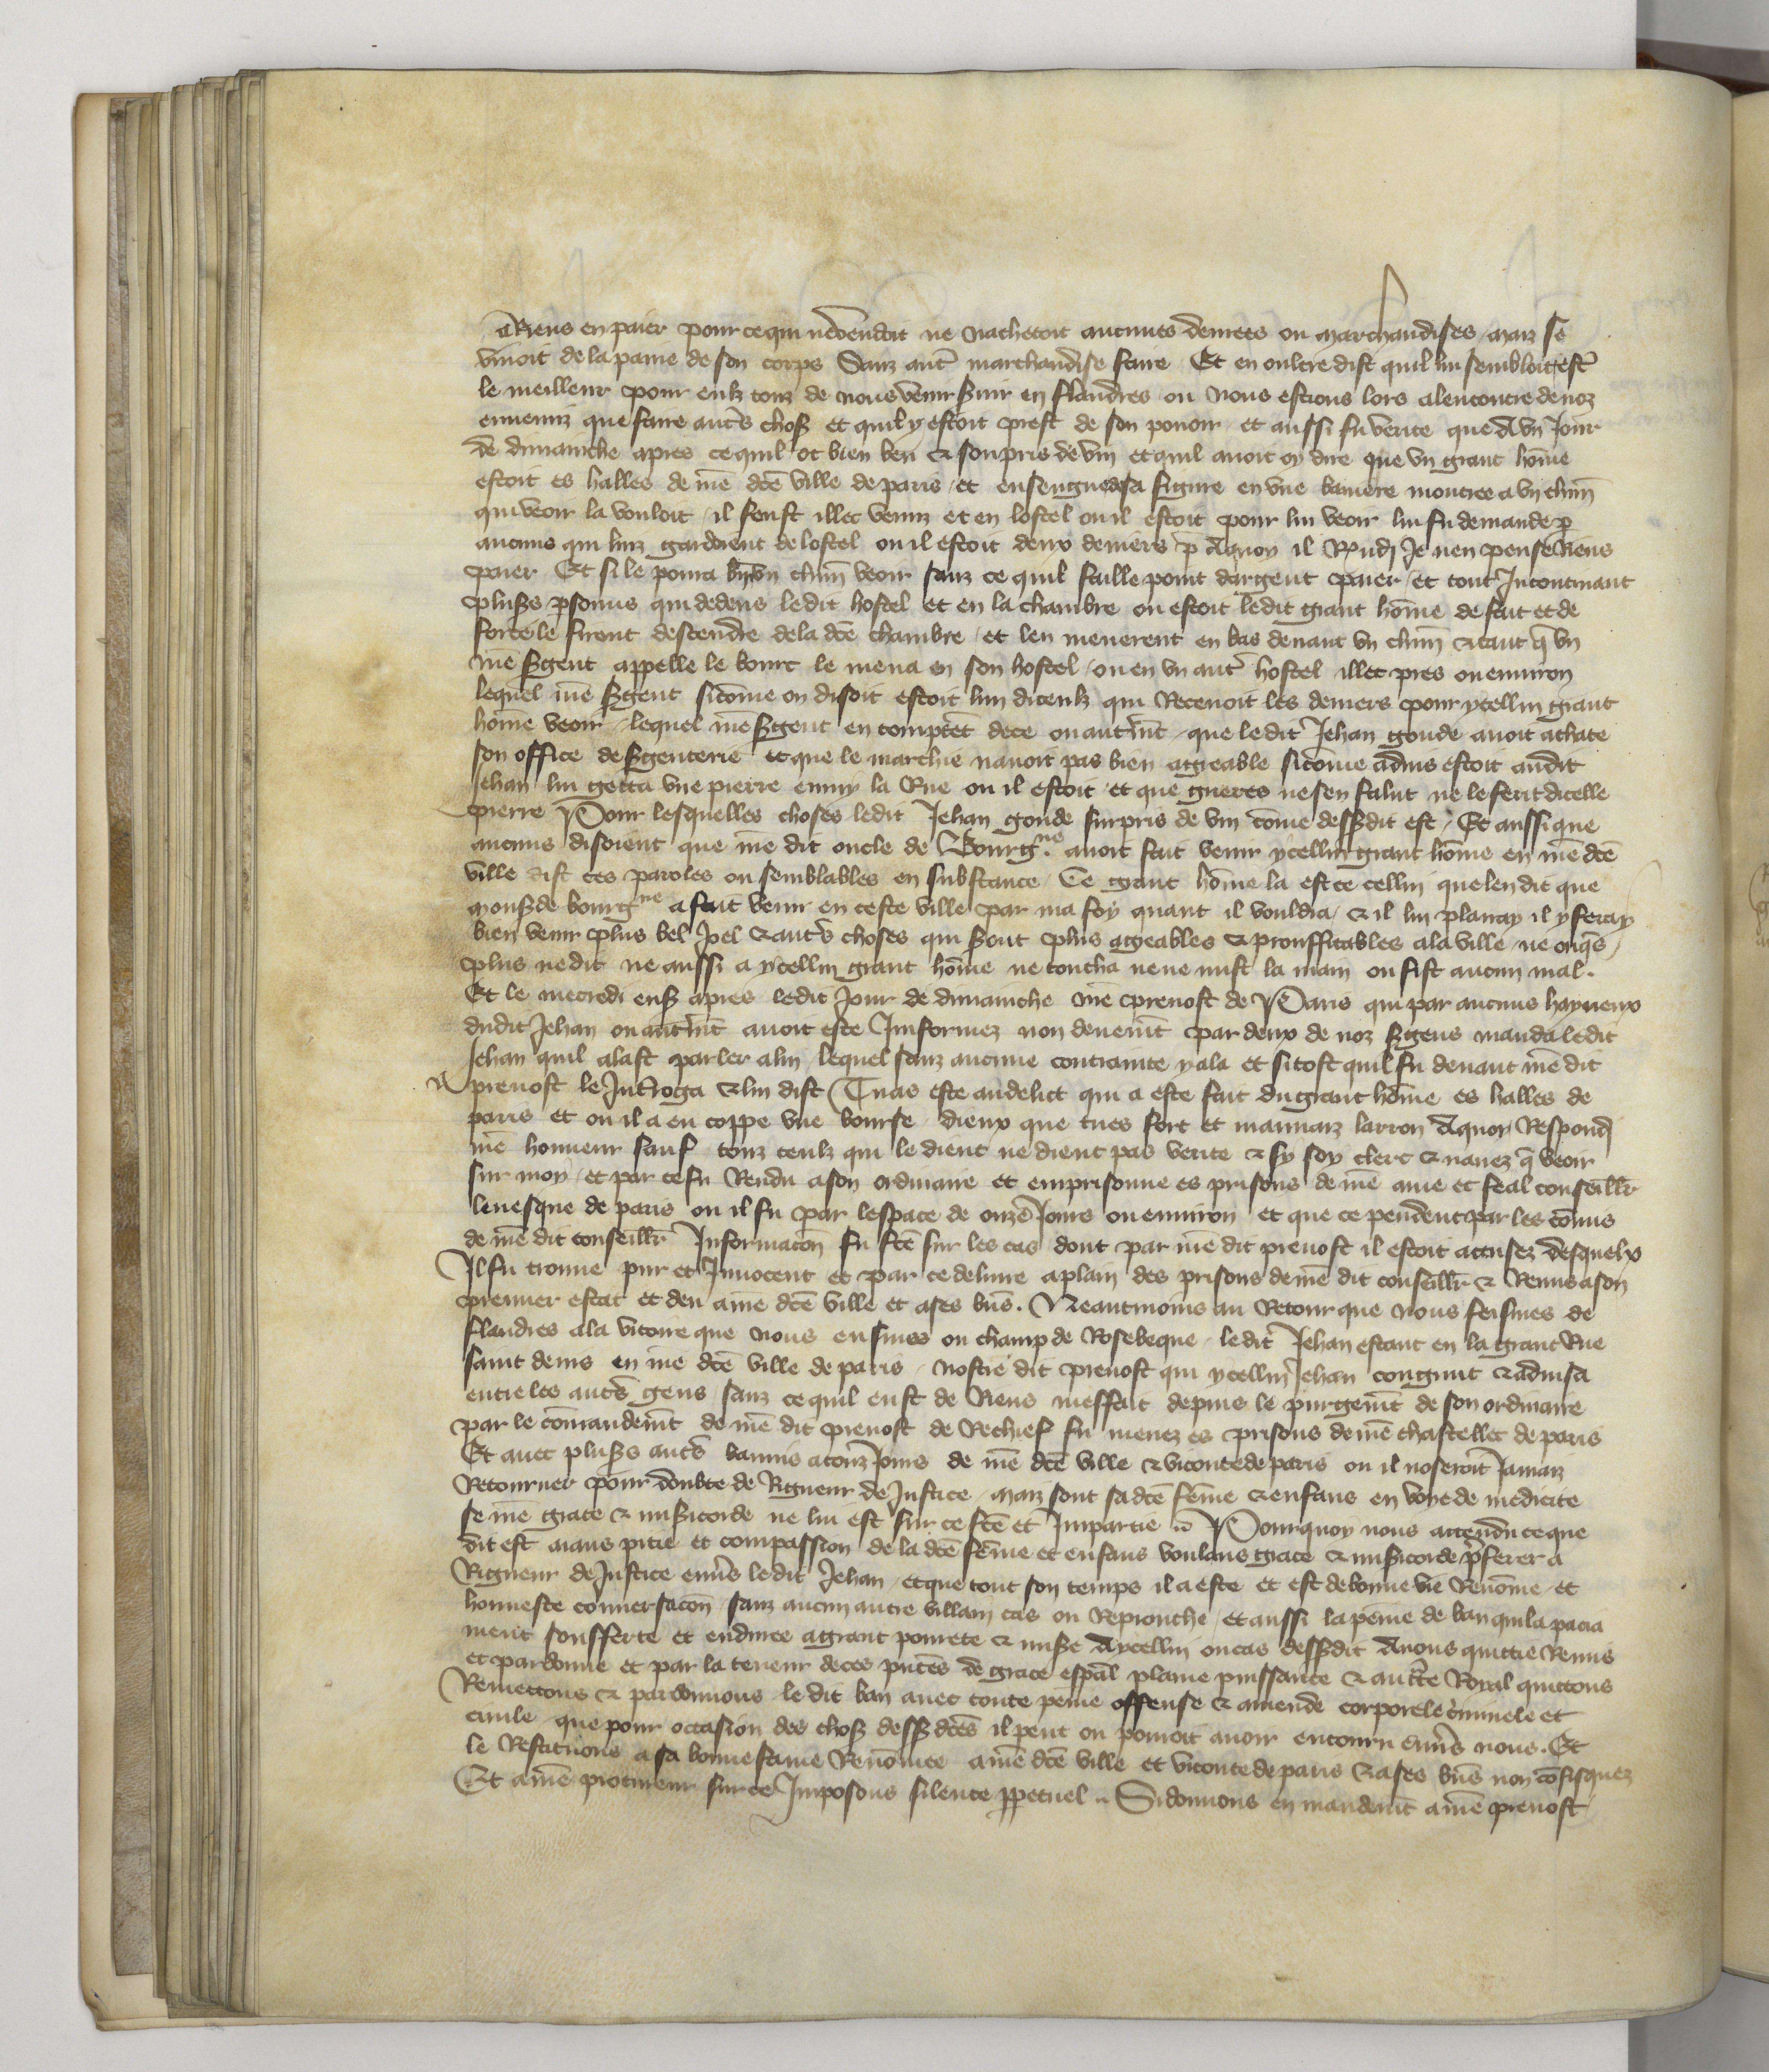 a Riens en paier pour ce qui ne vendoit ne nachetoit aucunes denrees ou marchandises, maiz se
vivoit de la paine de son corps Sanz autre marchandise faire. Et en oultre dist quil lui sembloit estre
le meilleur pour eulz touz de nous venir Suir en flandres ou nous estions lors alencontre de noz
ennemiz que faire autres choses et quil y estoit prest de son povoir et aussi fu verite que a un Jour
de dimainche apres ce quil ot bien beu & souspris de vin et quil avoit oy dire que un grant hōme
estoit es halles de nrē dcē ville de paris, et enseigne de sa figure en une baniere moutree a un chūn
qui veoir la vouloit, il senst illec venuz et en lostel ou il estoit pour lui veoir lui fu demandé p
aucuns qui luiz gardoient de lostel ou il estoit deux deniers p̄ A quoy il Rpndi Je nen pense Riens
paier Et si le pourra un chūn veoir sanz ce quil faille point dargent paier, et tout Incontinant
plus's psonnes qui dedens ledit hostel et en la chambre ou estoit ledit grant hōme de fait et de
force le firent descendre de la dcē chambre, et len menerent en bas devant un chūn & tant q̄ un
nrē Sgent appelle le bourc le mena en son hostel, ou en un autre hostel illec pres ou environ
lequel nrē Sgent sicōme on disoit estoit lun diceulz qui Recevoit les deniers pour ycellui grant
hōme veoir, lequel nrē Sgent en comptēt de ce ou autrmēt, que ledit Jehan goude avoit achate
son office de Sgenterie et que le marchie navoit pas bien agreable sicōme advis estoit audit
Jehan lui getta une pierre enmy la Rue ou il estoit, et que gueres ne sen falut ne le ferit dicelle
pierre Pour lesquelles choses ledit Jehan goude surpris de vin cōme dessusdit est, Et aussi que
aucuns disoient que nrē dit oncle de Bourgne avoit fait venir ycellui grant hōme en nrē dcē
ville dist ces paroles ou semblables en substance Ce grant hōme la est ce cellui que len dit que
mons de bourgne a fait venir en ceste ville par ma foy quant il vouldra, & il lui plairay il y feray
bien venir plus bel Joel & autres choses qui Sont plus ageables & prouffitables a la ville, ne onqs,
plus ne dit ne aussi a ycellui grant hōme ne toucha ne ne mist la main ou fist aucun mal.
Et le mecredi ens apres ledit Jour de dimainche nrē prevost de Paris qui par aucuns hayneux
dudit Jehan ou autrmēt avoit este Informez non deuemēt par deux de noz Sgens manda ledit
Jehan quil alast parler a lui, lequel sanz aucune contrainte y ala et sitost quil fu devant nrē dit
prevost le Introga & lui dist Tu as este au delict qui a este fait du grant hōme es halles de
paris et ou il a eu coppe une bourse, dieux que tu es fort et mauvaiz larron A quoy Respondi
nrē honneur sauf touz ceulz qui le dient ne dient pas verite & sy soy clerc & navez q̄ veoir
sur moy, et par ce fu Rendu a son ordinaire et emprisonne es prisons de nrē ame et feal conseillr
levesque de paris ou il fu par lespace de onze Jours ou environ, et que ce pendent par les cōmis
de nrē dit conseillr Informacōn fu fcē sur les cas dont par nrē dit prevost il estoit accusez desquelx
Il fu trouve pur et Innocent et par ce delivre a plain des prisons de nrē dit conseillr & Remis a son
premier estat et deu a nrē dcē ville et a ses bns. Neantmoins au Retour que nous feismes de
flandres a la victoire que nous eusmes ou champ de Rosebeque, ledit Jehan estant en la grant Rue
saint denis en nrē dcē ville de paris, nostre dit prevost qui ycellui Jehan congnut & advisa
entre les autres gens, sanz ce quil eust de Riens meffait depuis le purgemēt de son ordinaire
par le cōmandemēt de nrē dit prevost de Rechief fu menez es prisons de nrē chastellet de paris
Et avec plus's autres bannis a touz Jours de nrē dcē ville & viconte de paris ou il noseroit Jamaiz
Retourner pour doubte de Rigueur de Justice, maiz sont sa dcē fēme & enfans en voye de mēdicite
se nrē grace & misicorde ne lui est sur ce fcē et Impartie. Pourquoy nous attendu ce que
dit est aians pitie et compassion de la dcē fēme et enfans voulans grace & misicorde p̄ferer a
Rigueur de Justice envs ledit Jehan, et que tout son temps il a este et est de bonne vie Renōme, et
honneste conversacōn, sanz aucun autre villain cas ou Reprouche, et aussi la peine de ban quil a pacia
ment soufferte et enduree a grant povrete & mise A ycellui ou cas dessusdit Avons quittie Remis
et pardonne et par la teneur de ces pntēs de grace espāl plaine puissance & auctte Royal quittons
Remettons & pardonnons ledit ban avec toute peine offense & amende corporele criminele et
civile que pour occasion des choses dessus dcēs il peut ou pourroit avoir encouru envs nous. Et
le Restituons a sa bonne fame Renōmee a nrē dcē ville et viconte de paris & a ses bns non cōfisquez
Et a nrē procureur sur ce Imposons silence ppetuel. Si donnons en mandemēt a nrē prevost